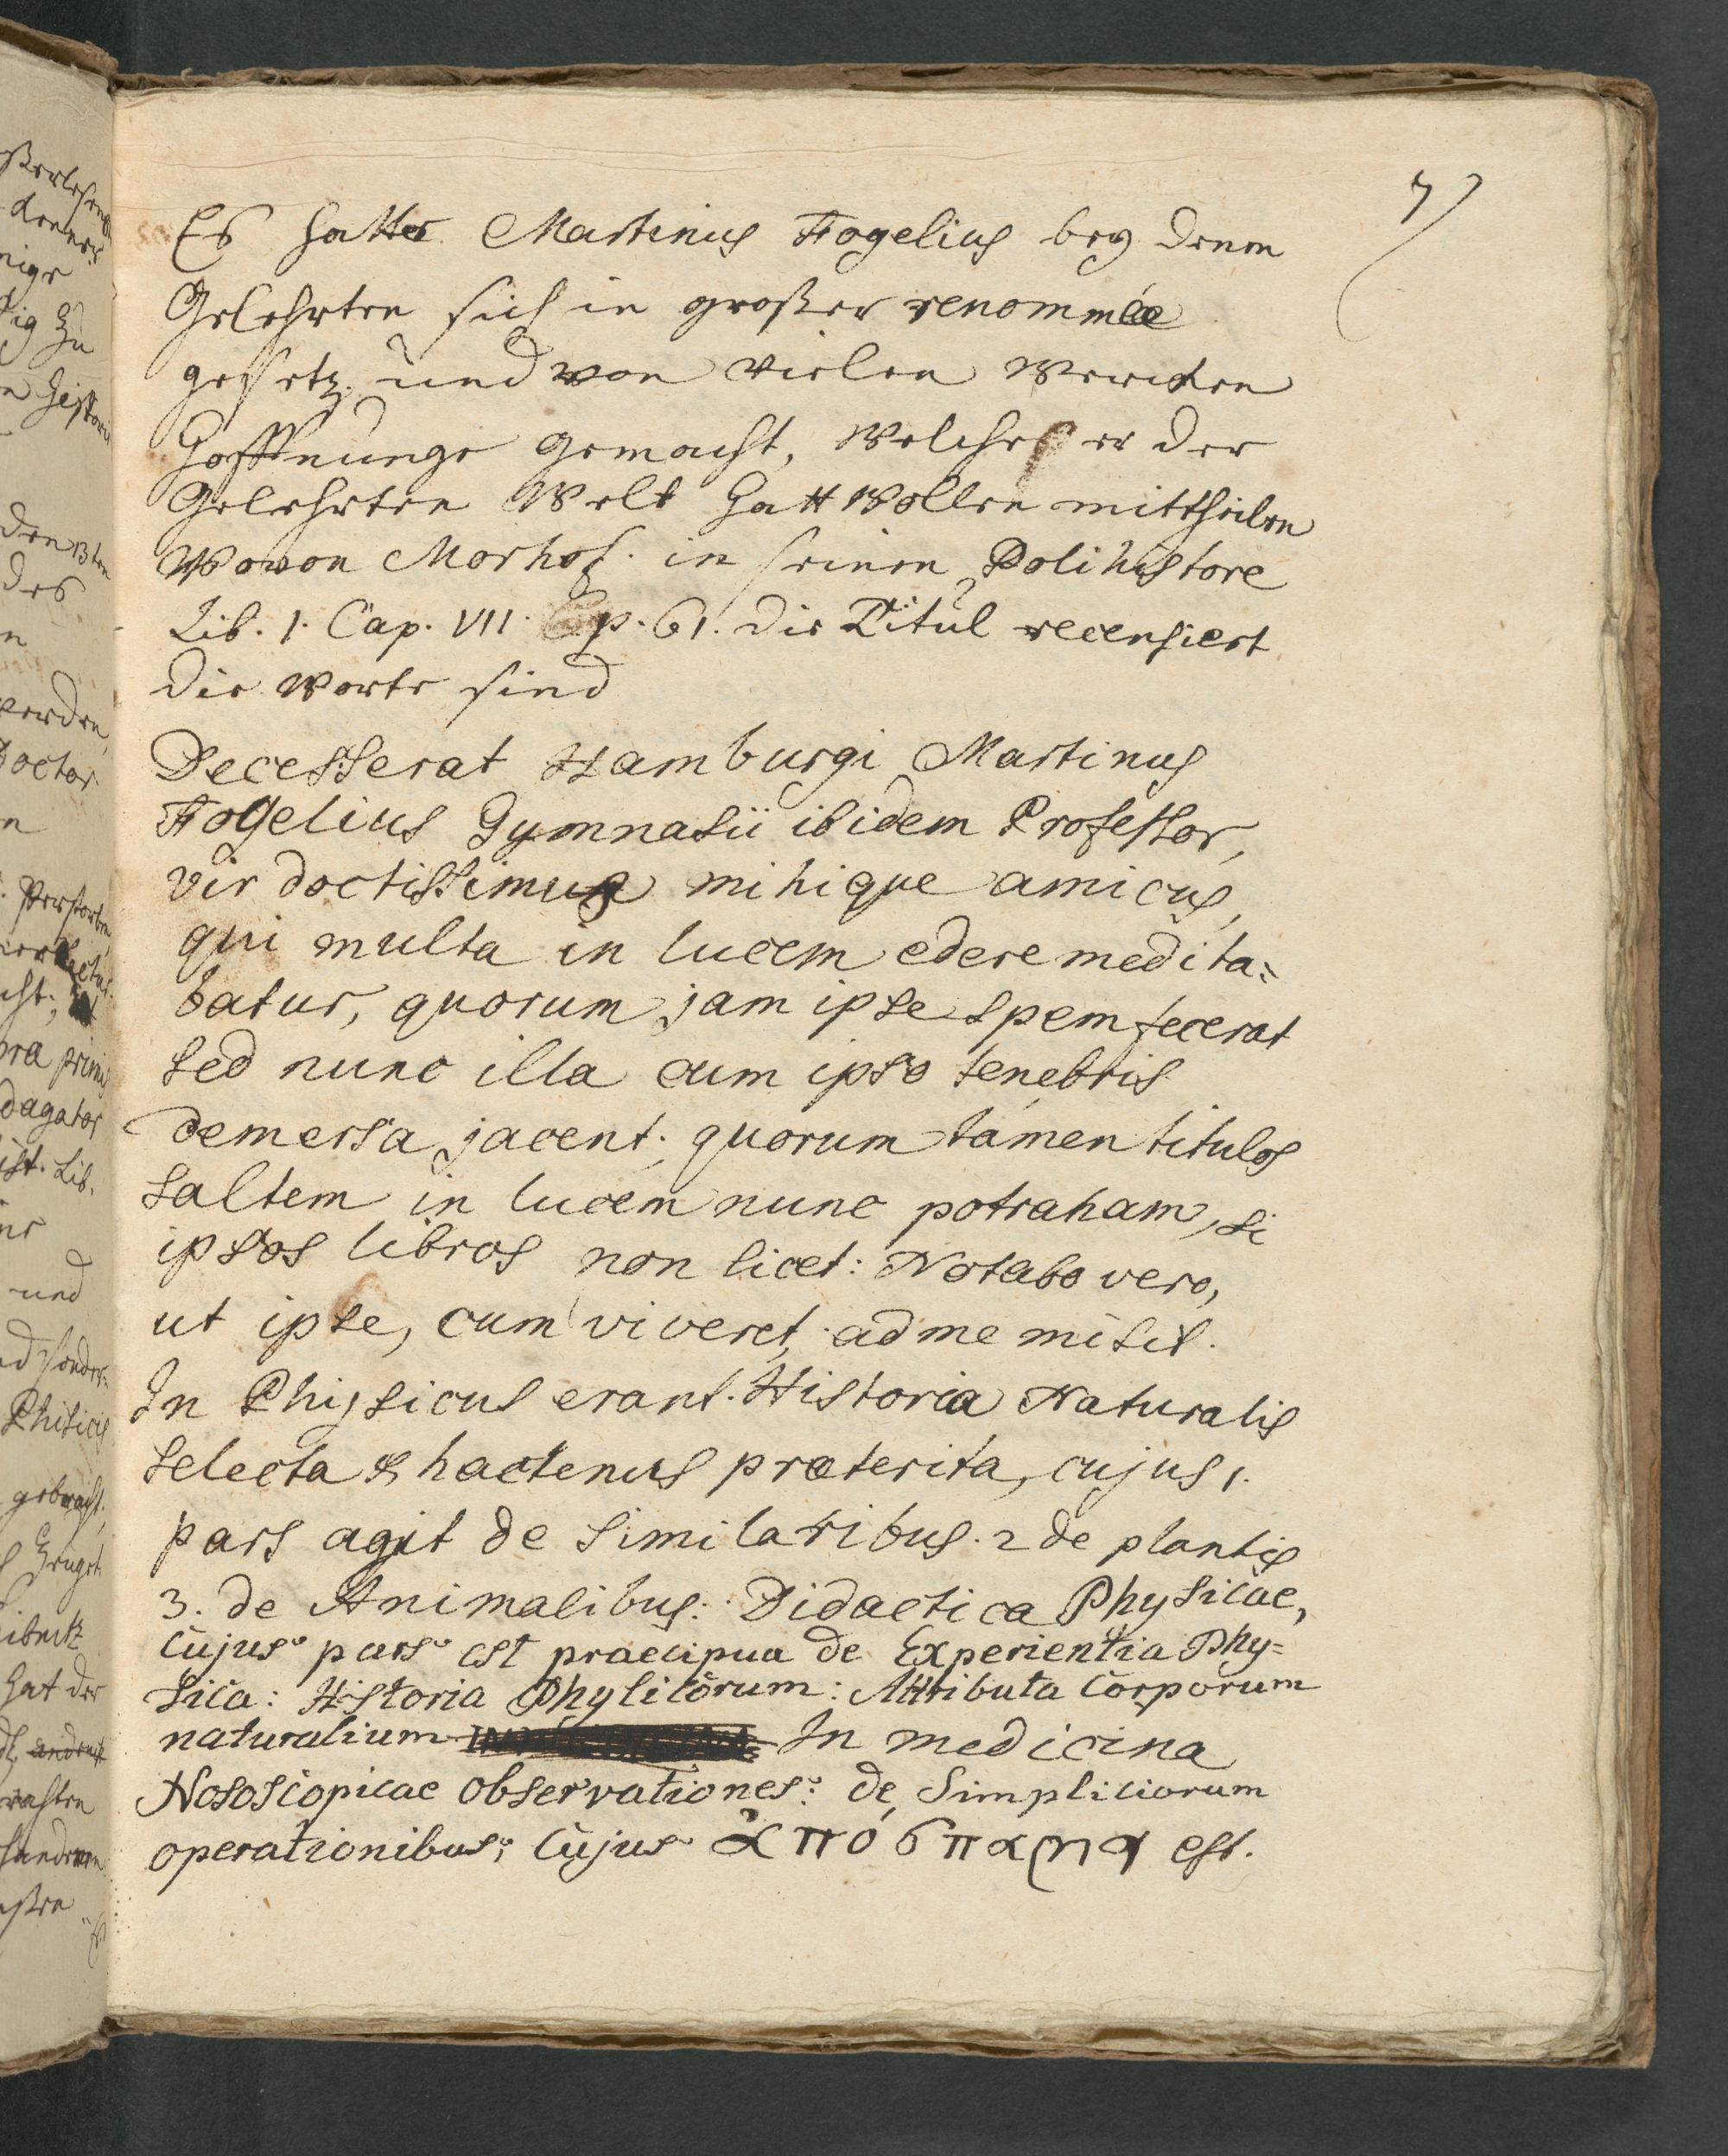 7)
Es hatte Martinus Fogelius bey denen
Gelehrten sich in großer renommée
gesetz, und von vielen Wercken
Hoffnunge gemacht, Welche er der
Gelehrten Welt hatt wollen mittheilen
Wovon Morhof. in seinen Polihistore
Lib. 1. Cap. VII. p. 61. die Titul recensiert
die Worte sind
Decesserat Hamburgi Martinus
Fogelius Gymnasii ibidem Professor,
vir doctissimus mihique amicus,
qui multa in lucem edere medita=
batur, quorum jam ipse spem fecerat
sed nunc illa cum ipso tenebris
demersa jacent; quorum tamen titulos
saltem in lucem nunc potraham, si
ipsos libros non licet: Notabo vero,
ut ipse, cum viveret, ad me misit.
In Physicus erant. Historia Naturalis
selecta & hactenus præterita, cujus 1.
pars agit de similaribus. 2 de plantis
3. de Animalibus: Didactica Physicae,
cujus pars est praecipua de Experientia Phy=
sica: Historia Physicorum: Attributa Corporum
naturalium In medicina
Nososcopicae observationes: de Simpliciorum
operationibus; Cujus ἀπόσπασμα est.